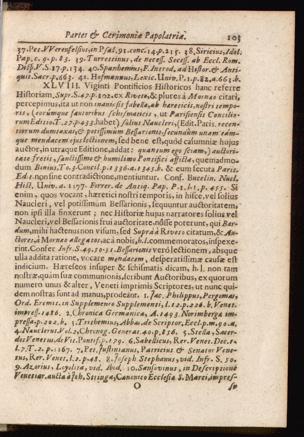 Partes & Cerimoniæ Papolatriæ. 103
37. Pet. VVerenfelsius, in Psal. 91. conc. 14. p. 215. 38. Siricius, Idol.
Pap. c. 9. p. 83. 39. Turretinus, de necess. Secess. ab Eccl. Rom.
Disp. V. S. 17. p. 134. 40. Spanhemius, F. Introd. ad Histor. & Anti-
quit. Sacr. p. 663. 41. Hofmannus, Lexic. Univ. P. 1. p. 82. a. 665. b.
XLVIII. Viginti Pontificios Historicos hanc referre
Historiam, Supr. S. 42. p. 102. ex Riveto, & plures à à Mornæo citari,
percepimus, ita ut non inanis sit fabula, ab hæreticis nostri tempo-
ris, (eorumque fautoribus schismaticis, ut Parisiensis Concilio-
rum Editor T. 27. p. 933. habet) falsus Naucleri, (Edit. Paris. recen-
tiorum dumtaxat, & potissimum Bessarionis secundum unam eám-
que mendacem ejus lectionem, sed bene est, quòd calumniæ hujus
auctor, in utraque Editione, addat: quantum ego sciam,) auctori-
tate fretis, sanctissimo & humilimo Pontifici afficta, quemadmo-
dum Binius, T. 3. Concil. p. 1336. a. 1345. b. & eum secuta Paris.
Ed. 1. non sine contradictione, mentiuntur. Conf. Bucelin. Nucl.
Hist. Univ. a. 1177. Forrer. de Antiq. Pap. P. 2. l. 1. p. 455. Si
enim, quos vocant, hæretici nostri temporis, in hisce, vel solius
Naucleri, vel potissimum Bessarionis, sequuntur auctoritatem,
non ipsi illa finxerunt; nec Historiæ hujus narratores solius vel
Naucleri, vel Bessarionis frui auctoritate nôsse poterunt, qui Bar-
dum, mihi hactenus non visum, sed Supra à Riveto citatum, & Au-
ctores, à Mornæo allegatos, ac à nobis, h. l. commemoratos, inspexe-
rint. Confer. Infr. S. 49. 50. 51. Bessarionis verò lectionem, absque
ulla addita ratione, vocare mendacem, desperatissimæ causæ est
indicium. Hæreticos insuper & schismatis dicam, h. l. non tam
nostræ, quàm suæ communionis, scribunt Auctoribus, ex quorum
numero unus & alter, Veneti imprimis Scriptores, ut nunc qui-
dem nostras sunt ad manus, prodeant. 1. Jac. Philippus, Bergomas,
Ord. Eremit. in Supplemento Supplementi, l. 12. p. 226. b. Venet.
impress. 1486. 2. Chronica Germanica, A. 1493. Norimberga im-
pressa, p. 202. b. 3. Trithemius, Abbas, de Scriptor. Eccl. p. m. 91. a.
4. Nauclerus, Vol. 2. Chronog. Generat. 40. p. 856. 5. Stella, Sacer-
dos Venetus, de Vit. Pontif. p. 179. 6. Sabellicus, Rer. Venet. Dec. 1.
l. 7. T. 2. p. 1167. 7. Pet. Justinianus, Patricius & Senator Vene-
tus, Rer. Venet. l. 2. p. 48. 8. Joseph Stephanus, vid. Infr. S. 50.
9. Azorius, Loyolita, vid. Ibid. 10. Sansovinus, in Descriptione
Venetiar. aucta à Joh. Stringa, Canonico Ecclesiæ S. Marci, impres-
O
sa